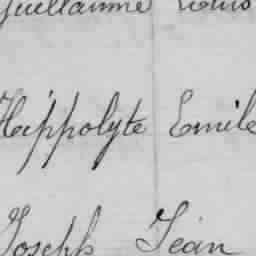 Guillaume Louis
Hippolyte Emile
Joseph Jean